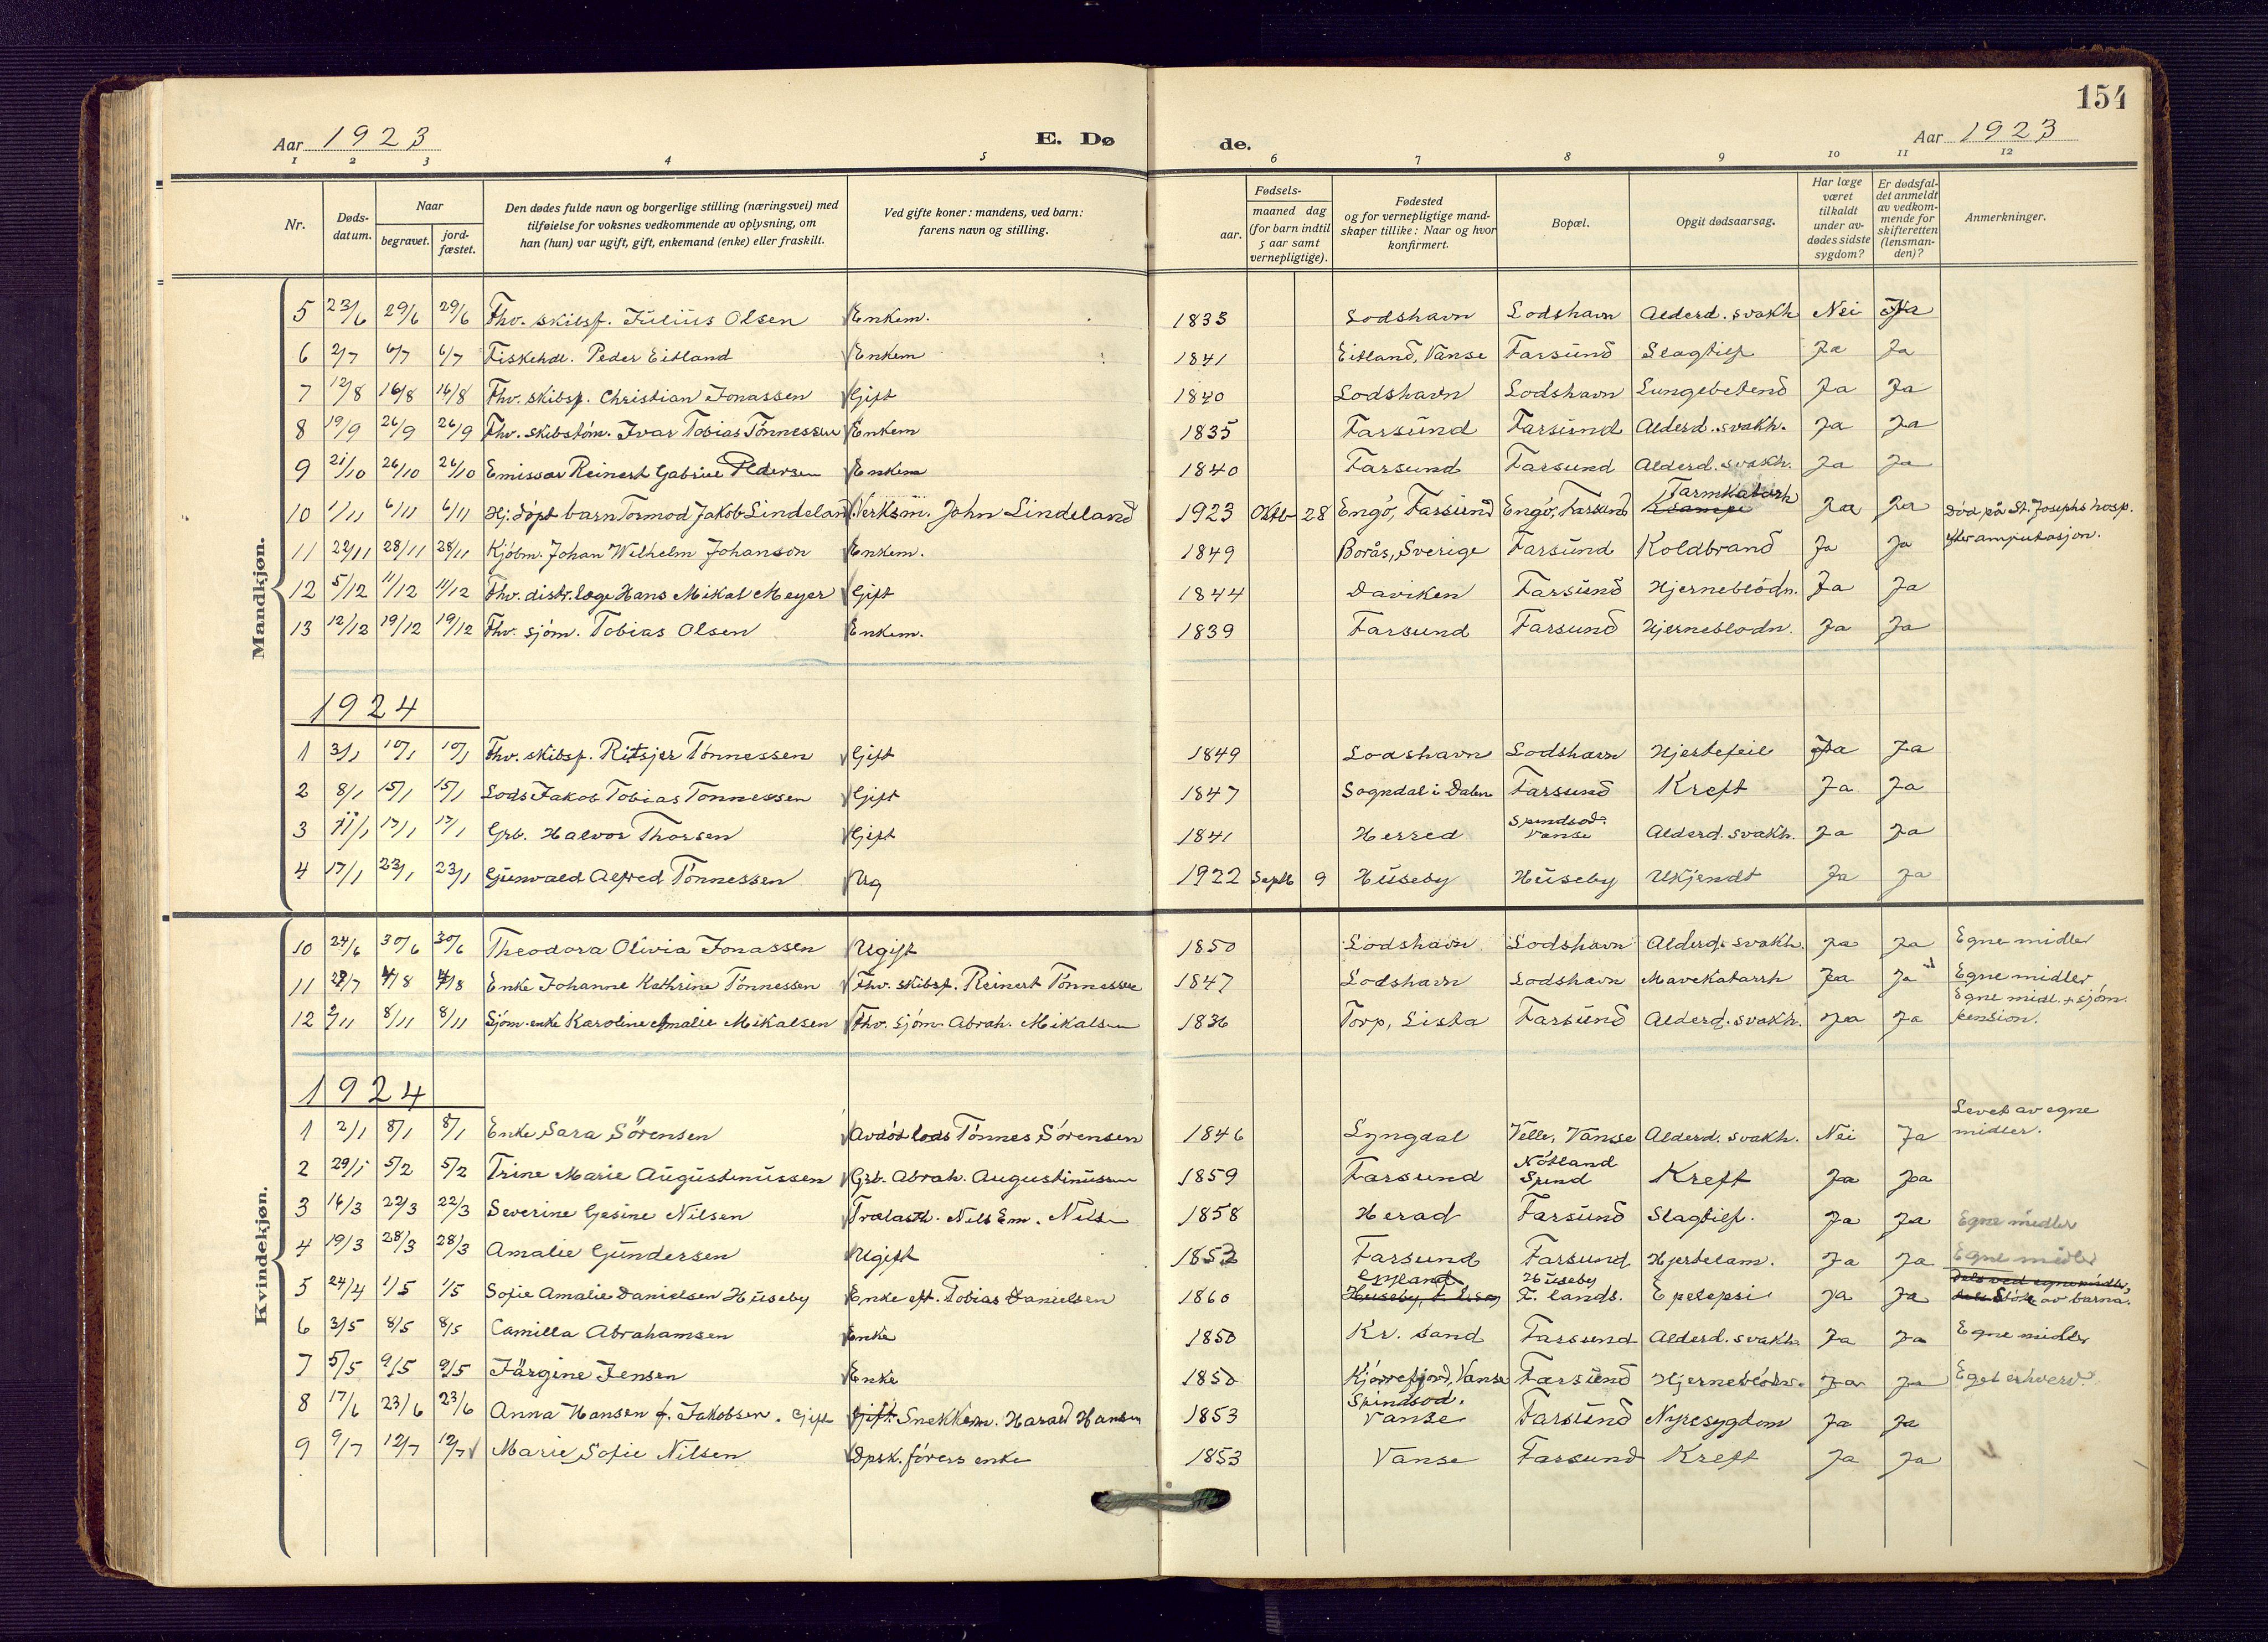 154
Aar 1923 E. Dø de. Aar 1923
1 2 3 4 5 6 7 8 9 10 11 12
Nr. Døds-datum. Naar begravet. jord-fæstet. Den dødes fulde navn og borgerlige stilling (næringsvei) med tilføielse for voksnes vedkommende av oplysning, om han (hun) var ugift, gift, enkemand (enke) eller fraskilt. Ved gifte koner: mandens, ved barn: farens navn og stilling. Fødsels- aar. maaned dag (for barn indtil 5 aar samt vernepligtige). Fødested og for vernepligtige mand-skaper tillike: Naar og hvor konfirmert. Bopæl. Opgit dødsaarsag. Har læge været tilkaldt under av-dødes sidste sygdom? Er dødsfal-det anmeldt av vedkom-mende for skifteretten (lensman-den)? Anmerkninger.
Mandkjøn.
5 23/6 29/6 29/6 Fhv. skibsf. Julius Olsen Enkem. 1833 Lodshavn Lodshavn Alderd. svakh Nei Ja
6 2/7 6/7 6/7 Fiskehdl. Peder Eitland Enkem 1841 Eitland, Vanse Farsund Slagtilf Ja Ja
7 12/8 16/8 16/8 Fhv. skibsf. Christian Jonassen Gift 1840 Lodshavn Lodshavn Lungebetend Ja Ja
8 19/9 26/9 26/9 Fhv. skibstöm. Ivar Tobias Tönnessen Enkem 1835 Farsund Farsund Alderd. svakh. Ja Ja
9 21/10 26/10 26/10 Emissær Reinert Gabriel Pedersen Enkem 1840 Farsund Farsund Alderd. svakh. Ja Ja
10 1/11 6/11 6/11 Hj. döpt barn Tormod Jakob Lindeland Verksm. John Lindeland 1923 Oktb 28 Engö, Farsund Engö, Farsund Tarmkatarh Ja Ja
11 22/11 28/11 28/11 Kjöbm. Johan Wilhelm Johanson Enkem. 1849 Borås, Sverige Farsund Koldbrand Ja Ja Död på St. Josephs hosp. efter amputasjon.
12 5/12 11/12 11/12 Fhv. distr. læge Hans Mikal Meyer Gift 1844 Daviken Farsund Hjerneblödn. Ja Ja
13 12/12 19/12 19/12 Fhv. sjöm. Tobias Olsen Enkem. 1839 Farsund Farsund Hjerneblodn. Ja Ja
1924
1 3/1 10/1 10/1 Fhv. skibsf. Ritsjer Tönnessen Gift 1849 Lodshavn Lodshavn Hjertefeil Ja Ja
2 8/1 15/1 15/1 Lods Jakob Tobias Tönnessen Gift 1847 Sogndal i Dalen Farsund Kreft Ja Ja
3 11/1 17/1 17/1 Grb. Halvor Thorsen Gift 1841 Herred Spindsod. Vanse Alderd. svakh. Ja Ja
4 17/1 23/1 23/1 Gunvald Alfred Tönnessen Ug 1922 Septb 9 Huseby Huseby Ukjendt Ja Ja
Kvindekjøn.
10 24/6 30/6 30/6 Theodora Olivia Jonassen Ugift 1850 Lodshavn Lodshavn Alderd. svakh. Ja Ja Egne midler
11 28/7 4/8 4/8 Enke Johanne Kathrine Tönnessen Fhv. skibsf. Reinert Tönnessen 1847 Lodshavn Lodshavn Mavekatarrh Ja Ja Egne midler
12 2/11 8/11 8/11 Sjöm. enke Karoline Amalie Mikalsen Fhv. sjöm. Abrah. Mikalsen 1836 Torp, Lista Farsund Alderd. svakh. Ja Ja Egne midl. + sjöm. pension.
1924
1 2/1 8/1 8/1 Enke Sara Sörensen Avdöd lods Tönnes Sörensen 1846 Lyngdal Velle, Vanse Alderd. svakh. Nei Ja Levet av egne midler.
2 29/1 5/2 5/2 Trine Marie Augustinussen Grb. Abrah. Augustinussen 1859 Farsund Nötland Spind Kreft Ja Ja
3 16/3 22/3 22/3 Severine Gesine Nilsen Trælasth. Nils Em. Nilsen 1858 Herad Farsund Slagtilf. Ja Ja Egne midler
4 19/3 28/3 28/3 Amalie Gundersen Ugift 1853 Farsund Farsund Hjertelam. Ja Ja Egne midler
5 24/4 1/5 1/5 Sofie Amalie Danielsen Huseby Enke eft. Tobias Danielsen 1860 Huseby, Huseby F. lands. Epelepsi Ja Ja Dels ved egne midler, dels Stöt av barna.
6 3/5 8/5 8/5 Camilla Abrahamsen Enke 1850 Kr. sand Farsund Alderd. svakh. Ja Ja Egne midler
7 5/5 9/5 9/5 Järgine Jensen Enke 1850 Kjörrefjord, Vanse Farsund Hjerneblödn. Ja Ja Eget erhverv.
8 17/6 23/6 23/6 Anna Hansen f. Jakobsen. Gift Gift Snekkerm. Harald Hansen 1853 Spindsod. Vanse Farsund Nyresygdom Ja Ja
9 9/7 12/7 12/7 Marie Sofie Nilsen Dpsk. förers enke 1853 Vanse Farsund Kreft Ja Ja